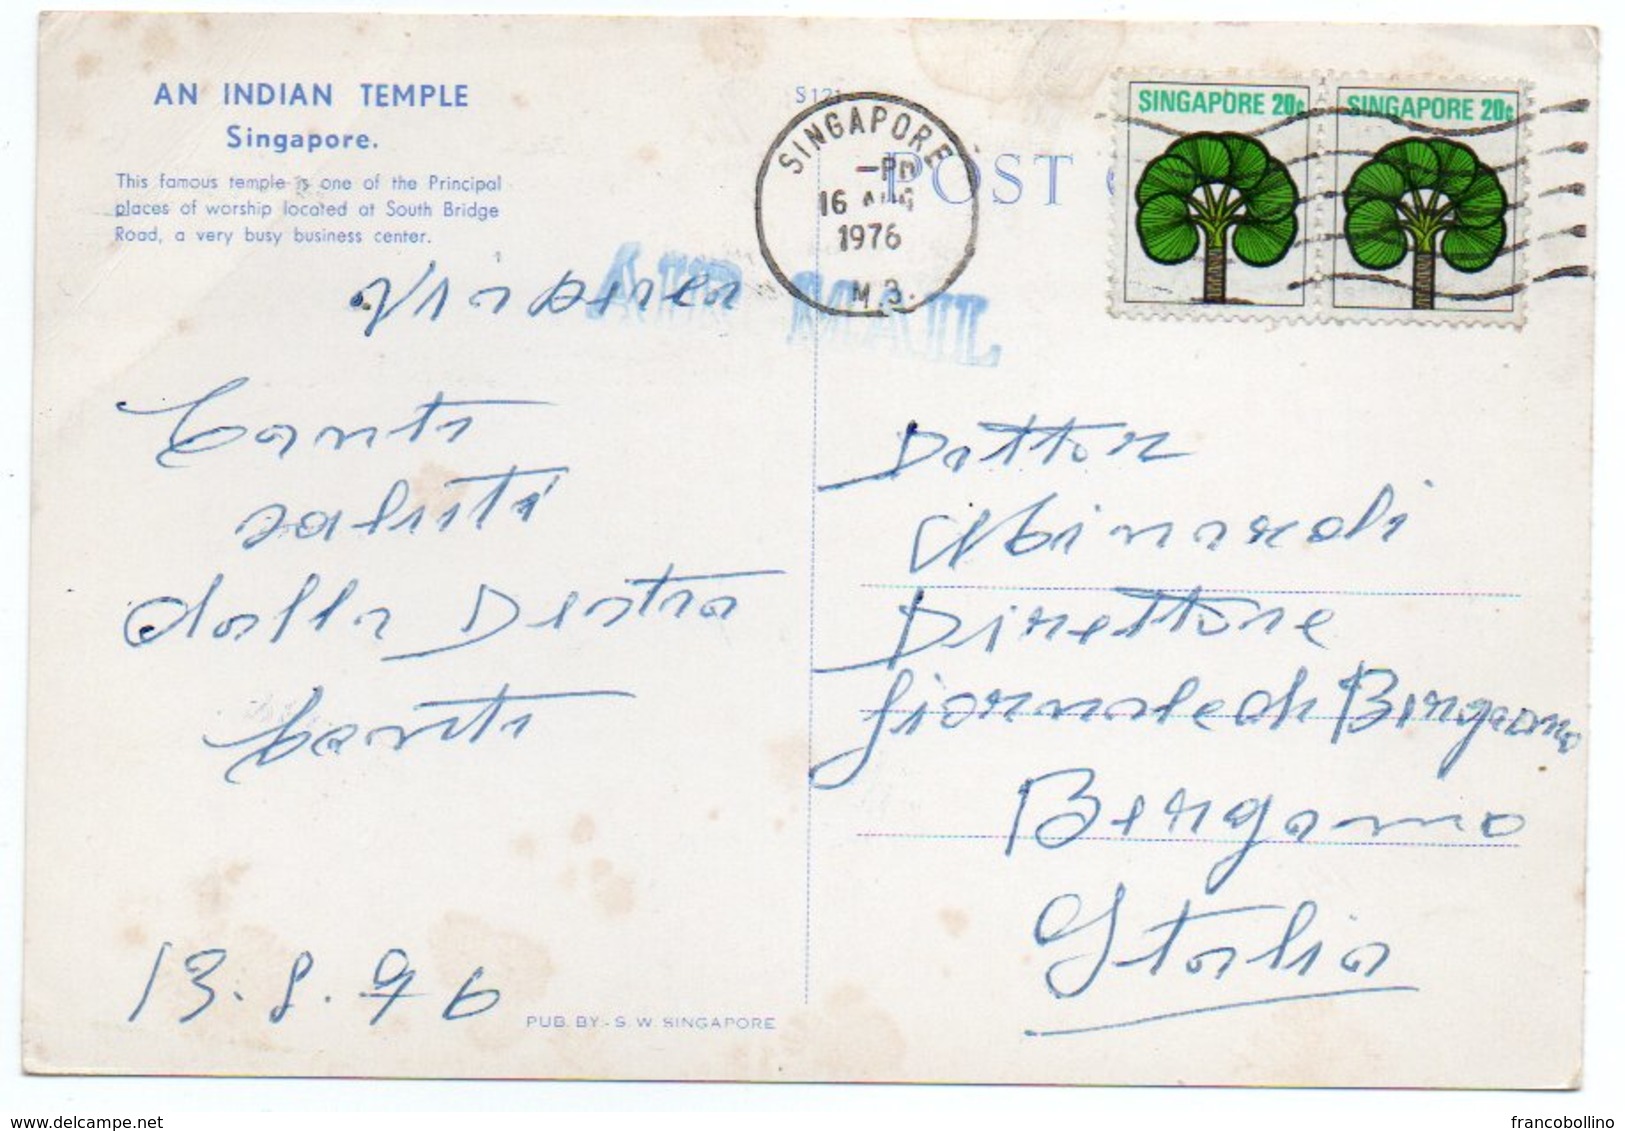 AN INDIAN TEMPLE
Singapore.
This famous temple is one of the Principal
places of worship located at South Bridge
Road, a very busy business center.
S121
SINGAPORE
-PM
16 AUG
1976
M.3.
POST
SINGAPORE 20c
SINGAPORE 20c
AIR MAIL
Via aerea
Tanti
saluti
dalla Destra
Dottor
Direttore
Giornale di Bergamo
Bergamo
Italia
13.8.76
PUB. BY:- S. W. SINGAPORE
francobollino